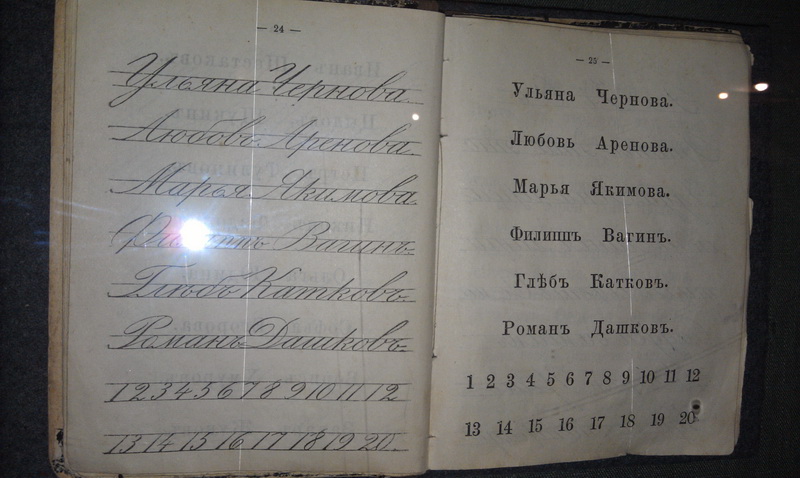 — 24 —
Ульяна Чернова.
Любовь Аренова.
Марья Якимова.
Филиппъ Вагинъ.
Глѣбъ Катковъ.
Романъ Дашковъ.
1 2 3 4 5 6 7 8 9 10 11 12
13 14 15 16 17 18 19 20.
— 25 —
Ульяна Чернова.
Любовь Аренова.
Марья Якимова.
Филиппъ Вагинъ.
Глѣбъ Катковъ.
Романъ Дашковъ.
1 2 3 4 5 6 7 8 9 10 11 12
13 14 15 16 17 18 19 20